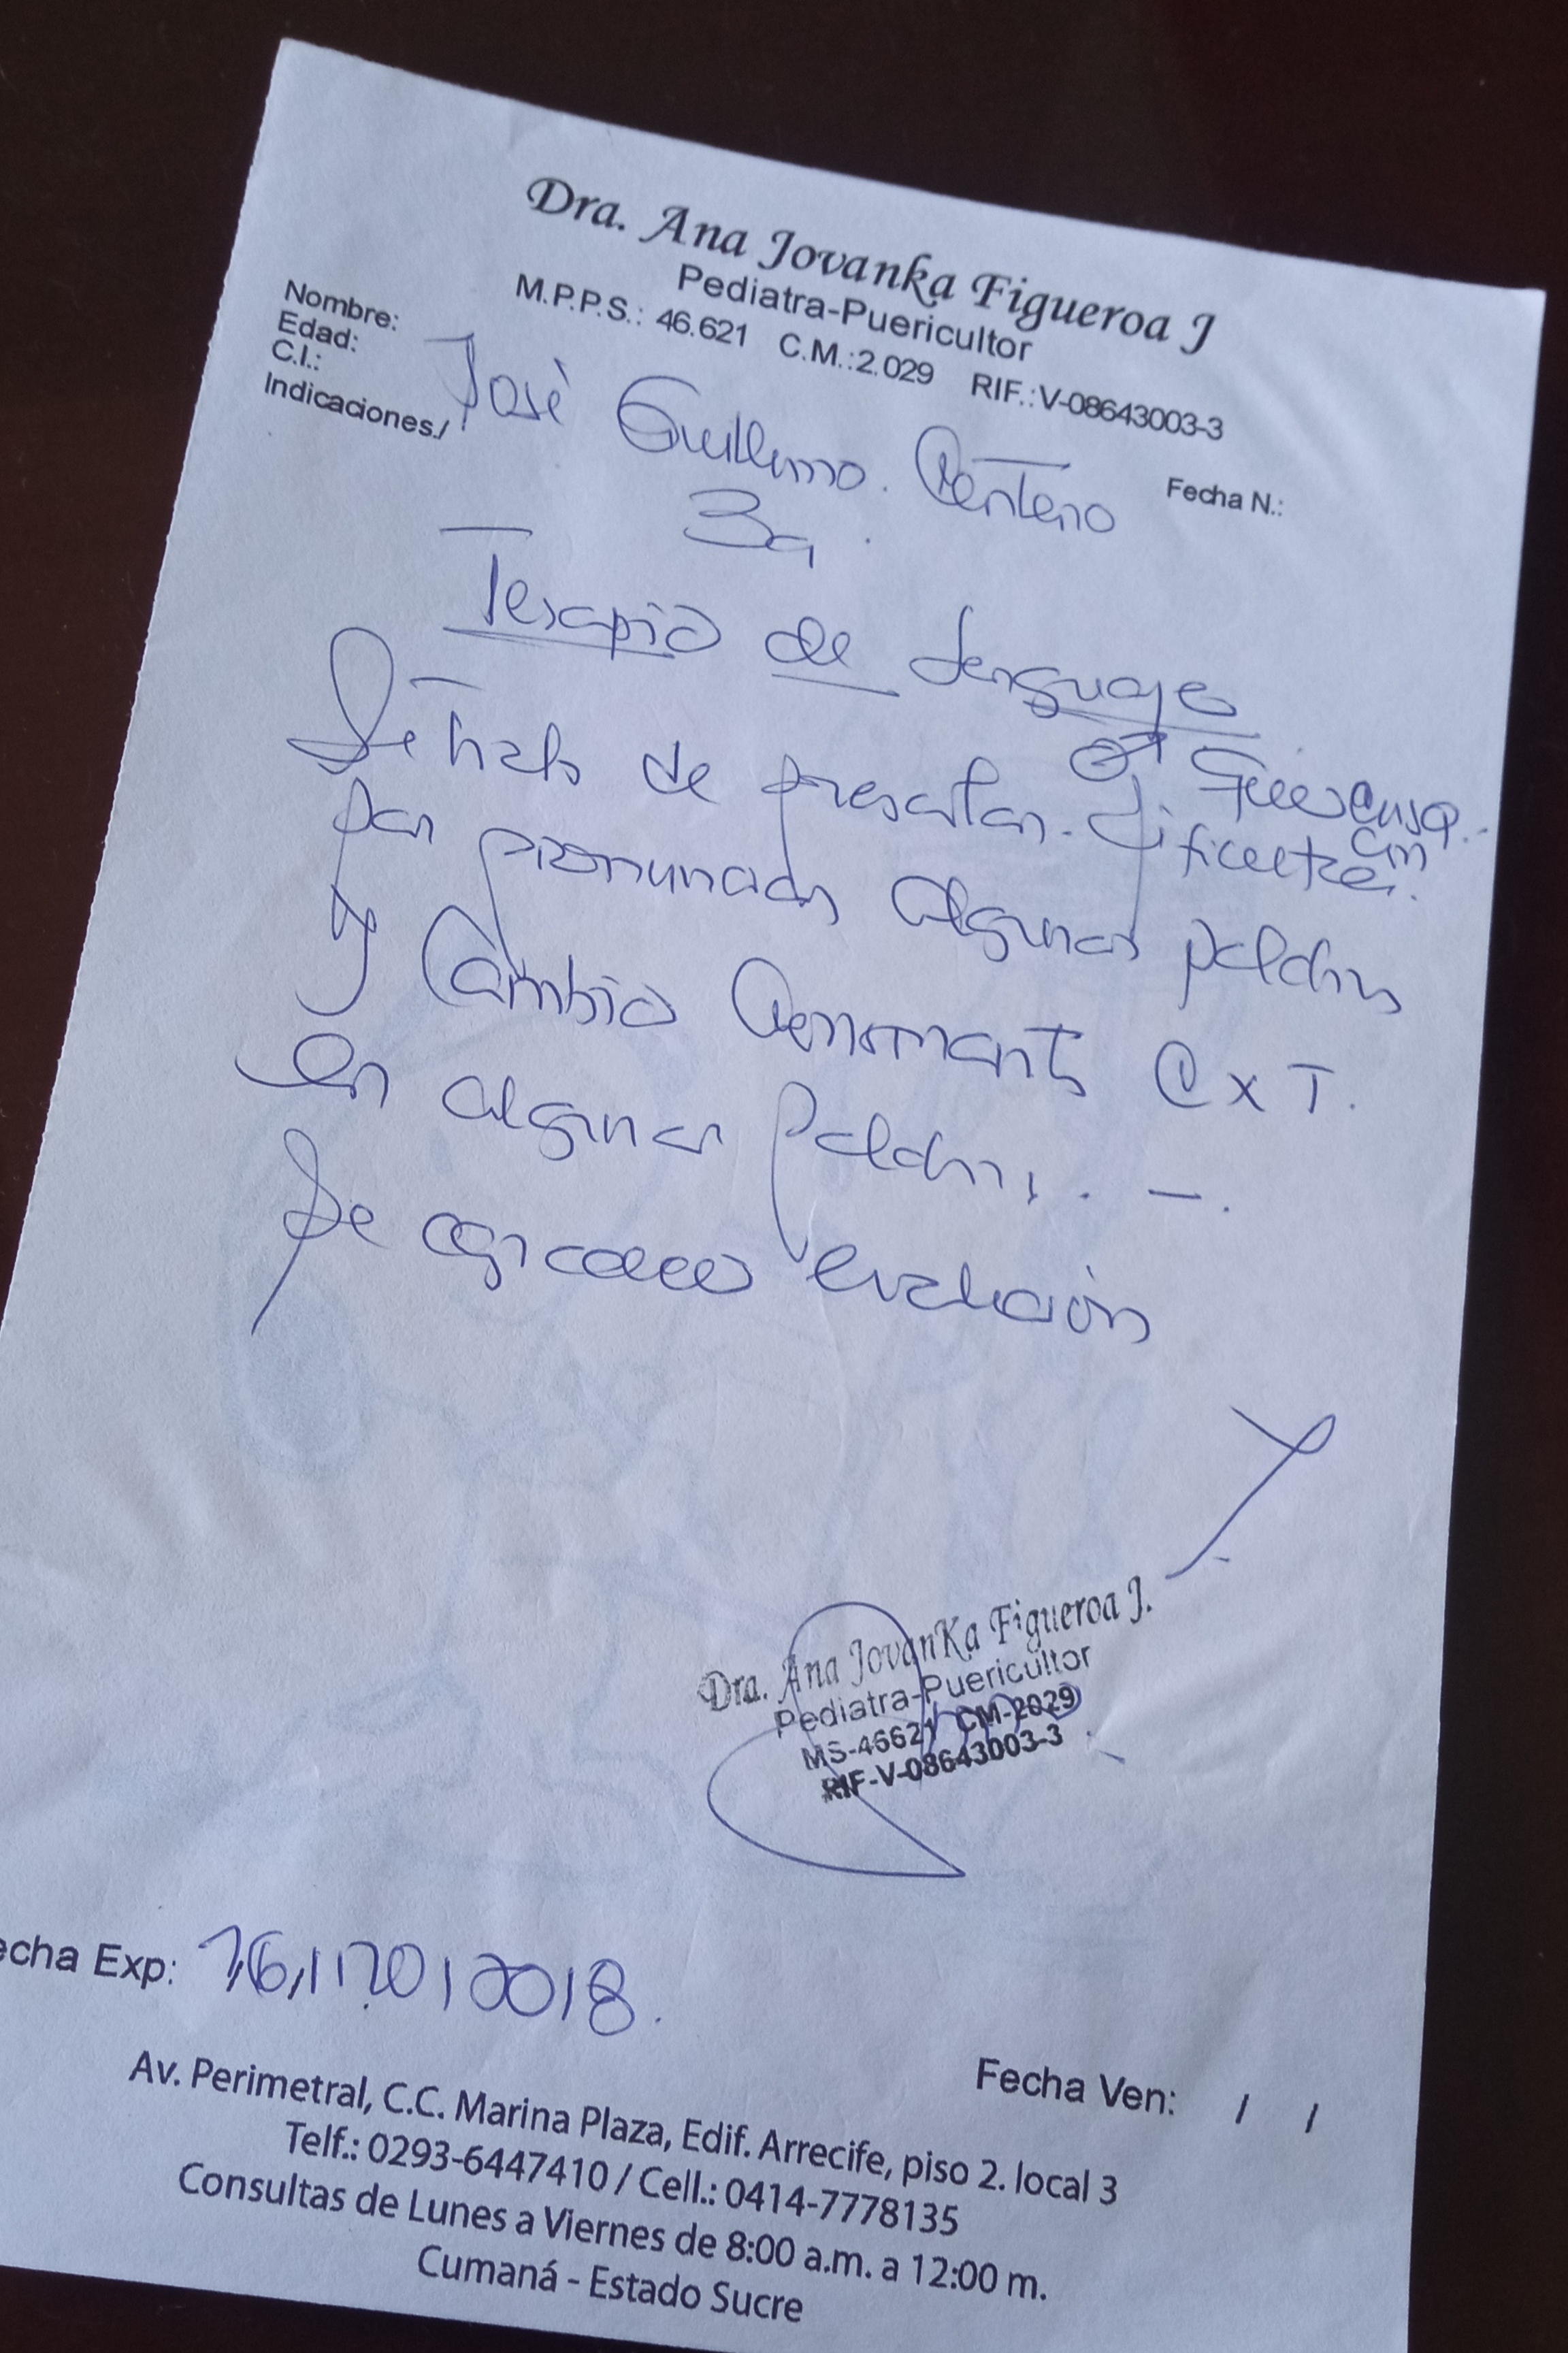 Dra. Ana Jovanka Figueroa J
Pediatra-Puericultor
M.P.P.S.: 46.621 C.M.:2.029 RIF.:V-08643003-3
Nombre:
Edad:
C.I.:
Indicaciones./
José Guillermo. Centeno
Fecha N.:
3a.
Terapia de Lenguaje
Se trata de
por pronunciar algunas palabras
y Cambia C x T.
en algunas palabras. -.
Se agradece evaluación
Dra. Ana JovanKa Figueroa J.
Pediatra-Puericultor
MS-46621 CM-2029
RIF-V-08643003-3
echa Exp: 2018.
Fecha Ven: / /
Av. Perimetral, C.C. Marina Plaza, Edif. Arrecife, piso 2. local 3
Telf.: 0293-6447410 / Cell.: 0414-7778135
Consultas de Lunes a Viernes de 8:00 a.m. a 12:00 m.
Cumaná - Estado Sucre